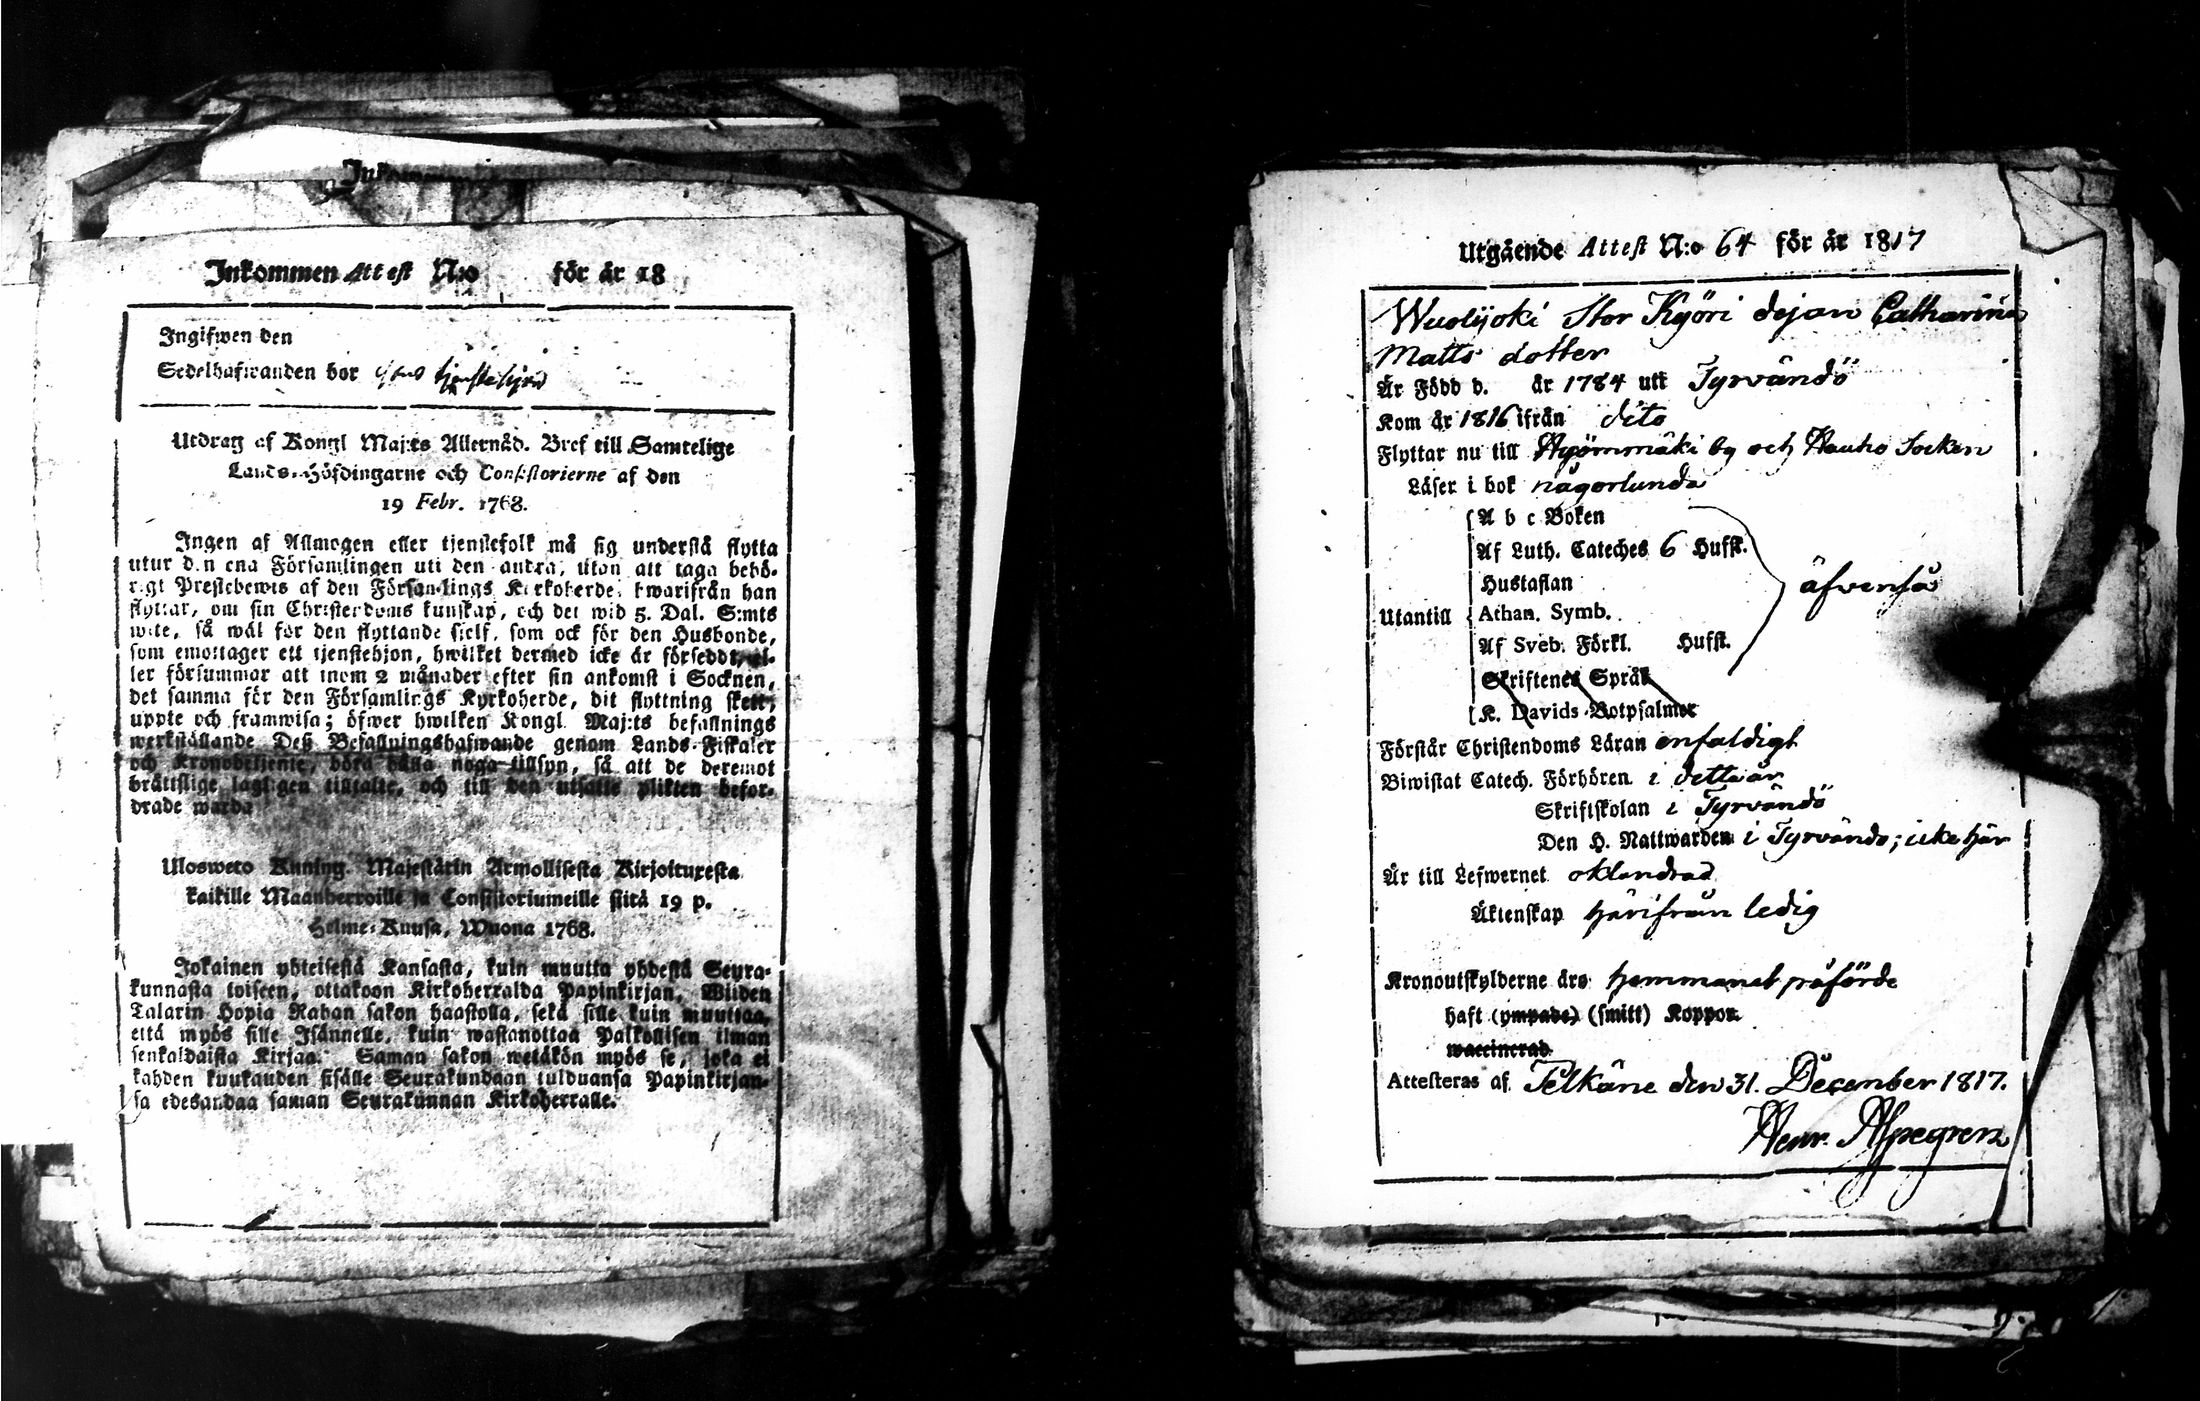 Inkommen Attest N:o för år 18
Ingifwen den
Sedelhafwanden bor
Utdrag af Kongl Maj:ts Allernåd. Bref till Samtelige
Lands-Höfdingarne och Consistorierne af den
19 Febr. 1768.
Ingen af Allmogen eller tjenstefolk må sig understå flytta
utur den ena Församlingen uti den andra, utan att taga behö-
rigt Prestebewis af den Församlings Kyrkoherde, hwarifrån han
flyttar, om sin Christendoms kunskap, och det wid 5. Dal. S:mts
wite, så wäl för den flyttande sjelf, som ock för den Husbonde,
som emottager ett tjenstehjon, hwilket dermed icke är försedt, el-
ler försummar att inom 2 månader efter sin ankomst i Socknen,
det samma för den Församlings Kyrkoherde, dit flyttning skett,
uppte och framwisa; öfwer hwilken Kongl. Maj:ts befallnings
werkställande Deß Befallningshafwande genom Lands-Fiskaler
och Kronobetjente, böra hålla noga tillsyn, så att de deremot
bråttslige lagligen tilltalte, och till den utsatte plikten befor-
drade warda
Ulosweto Kuning. Majestätin Armollisesta Kirjoituxesta
kaikille Maanherroille ja Consistoriumeille siitä 19 p.
Helme-Kuusa, Wuona 1768.
Jokainen yhteisestä Kansasta, kuin muutta yhdestä Seura-
kunnasta toiseen, ottakoon Kirkoherralda Papinkirjan, Wiiden
Talarin Hopia Rahan sakon haastolla, sekä sille kuin muuttaa,
että myös sille Isännelle, kuin wastanottaa Palkollisen ilman
senkaldaista Kirjaa. Saman sakon wetäkön myös se, joka ei
kahden kuukauden sisälle Seurakundaan tulduansa Papinkirjan-
sa edesandaa saman Seurakunnan Kirkoherralle.
Utgående Attest N:o 64 för år 1817
Wuolijoki Stor Kyöri dejan Catharina
Matts dotter
Är Född d. år 1784 uti Tyrvändö
Kom år 1816 ifrån dito
Flyttar nu till Hyömmäki by och Hauho Socken
Läser i bok någorlunda
A b c Boken
Af Luth. Cateches 6 Hufst.
Hustaflan
äfvenså
Utantill Athan. Symb.
Af Sveb. Förkl. Hufst.
Skriftenes Språk
K. Davids Botpsalmer
Förstår Christendoms Läran enfaldigt
Biwistat Catech. Förhören i detta år
Skriftskolan i Tyrvändö
Den H. Nattwarden i Tyrvändö; icke här
Är till Lefwernet oklandrad
Äktenskap härifrån ledig
Kronoutskylderne äro hemmanet påförde
haft (ympade) (smitt) Koppor.
waccinerad
Attesteras af Pelkäne den 31. December 1817.
Henr. Alpegren